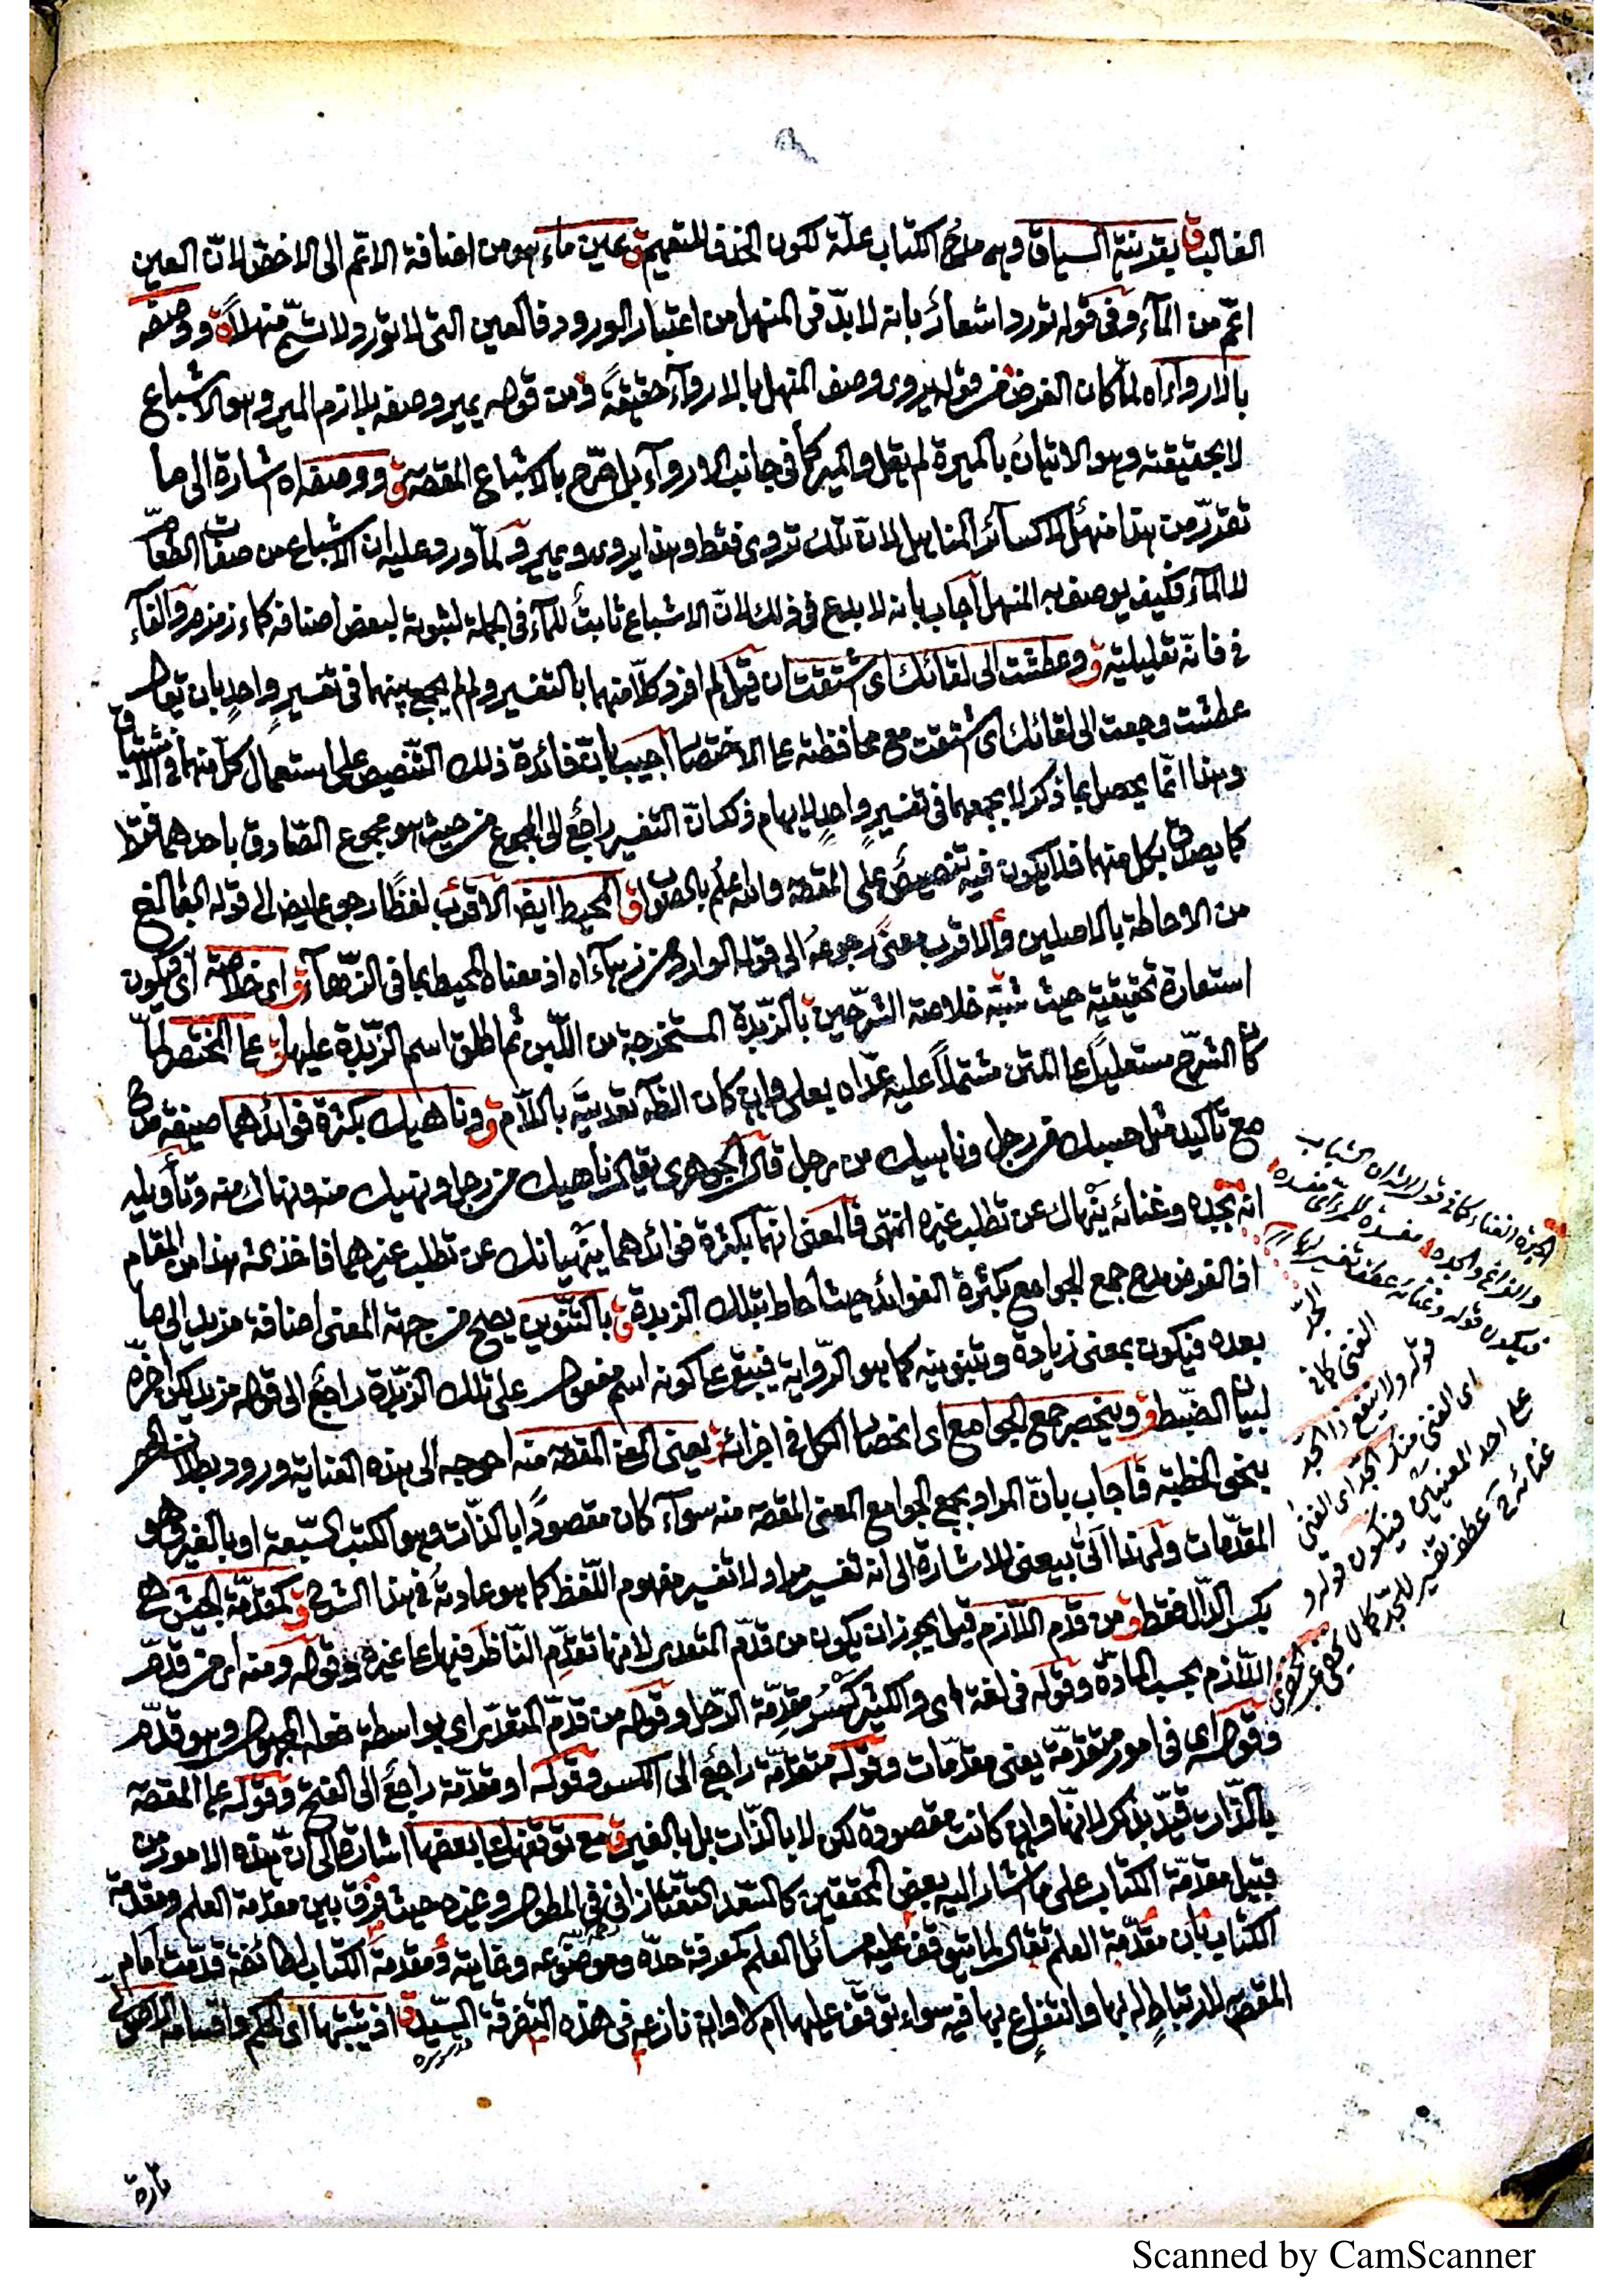 الغالب ق بقرينة السياق وهى مدح الكتاب علة لكون الحذف للتعميم ق عين ماء هو من اضافة الاعم الى الاخص لان العين
اعم من الماء وفى قوله تورد اشعار بانه لابد فى المنهل من اعتبار الورود فالعين التى لا تورد لا تسمى منهلا ق ووصفه
بالارواء اه لما كان الغرض من قوله يروى وصف المنهل بالارواء حقيقة ومن قوله يمير وصفه بلازم المير وهو الاشباع
لا بحقيقته وهو الاتيان بالميرة لم يقل والمير كما فى جانب الارواء بل صرح بالاشباع المقصه ق ووصفه اه اشارة الى ما
تقرر من هذا منهل لا كسائر المناهل لان تلك تروى فقط وهذا يروى ويمير ولما ورد عليه ان الاشباع من صفات الطعام
لا الماء فكيف يوصف به المنهل اجاب بانه لا بدع فى ذلك لان الاشباع ثابت للماء فى الجملة لثبوته لبعض اصنافه كماء زمزم والفاء
فى فانه تعليلية ق وعطشت الى لقائك اى اشتقت ان قيل لم افرد كلا منهما بالتفسير ولم لم يجمع بينهما فى تفسير واحد بان يقول
عطشت وجعت الى لقائك اى اشتقت مع محافظته على الاختصار اجيب بان فائدة ذلك التنصيص على استعمال كل منهما فى الاشتياق
وهذا انما يحصل بما ذكر لا بجمعهما فى تفسير واحد لايهام ذلك ان التفسير راجع الى المجموع من حيث هو مجموع الصادق باحدهما فقط
كما يصدق بكل منهما فلا يكون فيه تنصيص على المقصه والله اعلم بالصواب ق المحيط ايضا الاقرب لفظا رجوع ايضا الى قوله البالغ
من الاحاطة بالاصلين والاقرب معنى رجوعه الى قوله الوارد من زهاء اه اذ معناه المحيط بما فى الزهاء ق اى خلاصة اى فيكون
استعارة تحقيقية حيث شبه خلاصة الشرحين بالزبدة المستخرجة من اللبن ثم اطلق اسم الزبدة عليها ق على المختصر لما
كان الشرح مستعليا على المتن مشتملا عليه عداه بعلى وان كان الظاهر تعديته باللام ق وناهيك بكثرة فوائدهما صيغة مدح
مع تأكيد مثل حسبك من رجل وناهيك من رجل قال الجوهرى يقال ناهيك من رجل ونهيك منه ونهاك منه وتأويله
انه بجده وغنائه ينهاك عن تطلب غيره انتهى فالمعنى انهما بكثرة فوائدهما ينهيانك عن تطلب غيرهما فاخذ منه هذا من المقام
اذ الغرض مدح جمع الجوامع بكثرة الفوائد حيث احاط بتلك الزبدة ق بالتنوين يصح من جهة المعنى اضافة مزيد الى ما
بعده فيكون بمعنى زيادة وتنوينه كما هو الرواية فيبقى على كونه اسم مفعول على تلك الزبدة راجع الى قوله مزيد لكن اخره
لبيان الضبط ق وينحصر جمع الجوامع اى انحصار الكل فى اجزائه ق يعنى المعنى المقصه منه احوجه الى هذه العناية ورود بطلان الحصر
بنحو الخطبة فاجاب بان المراد بجمع الجوامع المعنى المقصه منه سواء كان مقصودا بالذات وهو الكتب السبعة او بالغير وهو
المقدمات ولهذا اتى بيعنى للاشارة الى انه تفسير مراد لا تفسير مفهوم اللفظ كما هو عادته فى هذا الشرح ق كمقدمة الجيش هى
بكسر الدال فقط ق من قدم اللازم قيل يجوز ان يكون من قدم المتعدى لانها تقدم الناظر فيها على غيره وقوله ومنه اى من قدم
اللازم بحسب المادة وقوله فى لغة اى والكثير كسر مقدمة الرحل وقوله من قدم المتعدى اى بواسطة فعله المجهول وهو قدم
وقوله اى فى امور متقدمة يعنى مقدمات وقوله متقدمة راجع الى الكسر وقوله او مقدمة راجع الى الفتح وقوله على المقصه
بالذات قيد بذكر لانها وان كانت مقصودة لكن لا بالذات بل بالغير ق مع توقفه على بعضها اشارة الى ان هذه الامور من
قبيل مقدمة الكتاب على ما اشار اليه بعض المحققين كالسعد التفتازانى فى المطول وغيره حيث فرق بين مقدمة العلم ومقدمة
الكتاب بان مقدمة العلم تقال لما يتوقف عليه مسائل العلم كمعرفة حده وموضوعه وغايته ومقدمة الكتاب لطائفة قدمت امام
المقصه لارتباط له بها وانتفاع بها فيه سواء توقف عليها ام لا وان نازعه فى هذه التفرقة السيد ق اذ يثبتها اى الحكم واقسامه الاصولى
قدس سره
تارة
والفراغ والجده مفسدة للمرء اى مفسده
فيكون قوله وغنائه عطف تفسير لها
قوله ولا ينفع ذا الجد
اى الغنى منك الجد اى الغنى
على احد المعنيين فيكون قوله و
غنائه عطف تفسير للجد كما لا يخفى
Scanned by CamScanner